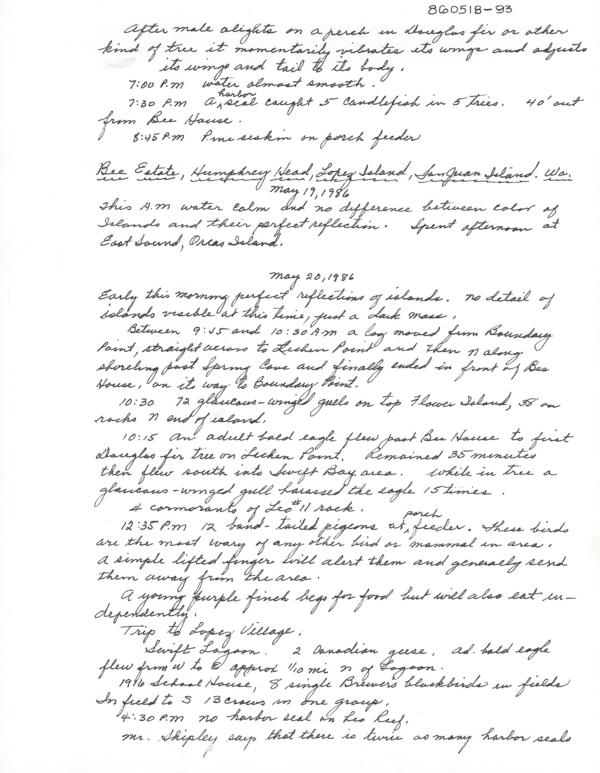 860518-93
After male alights on a perch in Douglas fir or other
kind of tree it momentarily vibrates its wings and adjusts
its wings and tail to its body.
7:00 P.M water almost smooth.
7:30 P.M A harbor seal caught 5 candlefish in 5 tries. 40' out
from Bee House.
8:45 P.M Pine siskin on porch feeder
Bee Estate, Humphrey Head, Lopez Island, San Juan Island. Wa.
May 19, 1986
This A.M water calm and no difference between color of
Islands and their perfect reflection. Spent afternoon at
East Sound, Orcas Island.
May 20, 1986
Early this morning perfect reflections of islands. No detail of
islands visible at this time, just a dark mass.
Between 9:45 and 10:30 AM a log moved from Boundary
Point, straight across to Lichen Point and then N along
shoreline past Spring Cove and finally ended in front of Bee
House, on its way to Boundary Point.
10:30 72 glaucous-winged gulls on top Flower Island, 58 on
rocks N end of island.
10:15 An adult bald eagle flew past Bee House to first
Douglas fir tree on Lichen Point. Remained 35 minutes
then flew south into Swift Bay area. While in tree a
glaucous-winged gull harassed the eagle 15 times.
4 cormorants of Leo #11 rock.
12:35 P.M 12 band-tailed pigeons at porch feeder. These birds
are the most wary of any other bird or mammal in area.
A simple lifted finger will alert them and generally send
them away from the area.
A young purple finch begs for food but will also eat in-
dependently.
Trip to Lopez Village.
Swift Lagoon. 2 Canadian geese. Ad. bald eagle
flew from W to E approx 1/10 mi N of Lagoon.
1916 School House, 8 single Brewers blackbirds in fields
In field to S 13 crows in one group.
4:30 P.M no harbor seal on Leo Reef.
Mr. Shipley says that there is twice as many harbor seals